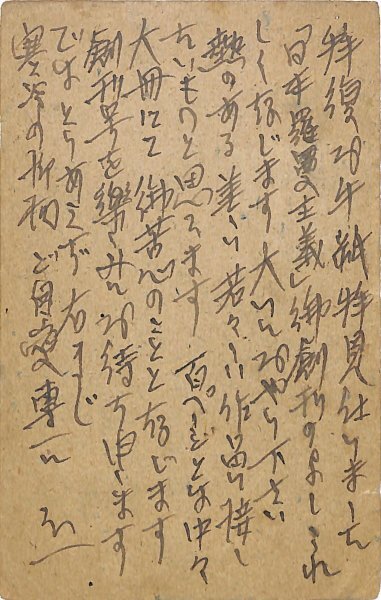 拝復 お手紙拝見仕りました
「日本羅曼主義」御創刊のよしうれ
しく存じます 大いにおやり下さい
熱のある美しい若々しい作品に接し
たいものと思ひます 百ページとは中々
大冊にて 御苦心のことと存じます
創刊号を楽しみにお待ち申します
ではとりあへず 右まで
寒冷の折柄 ご自愛専一に